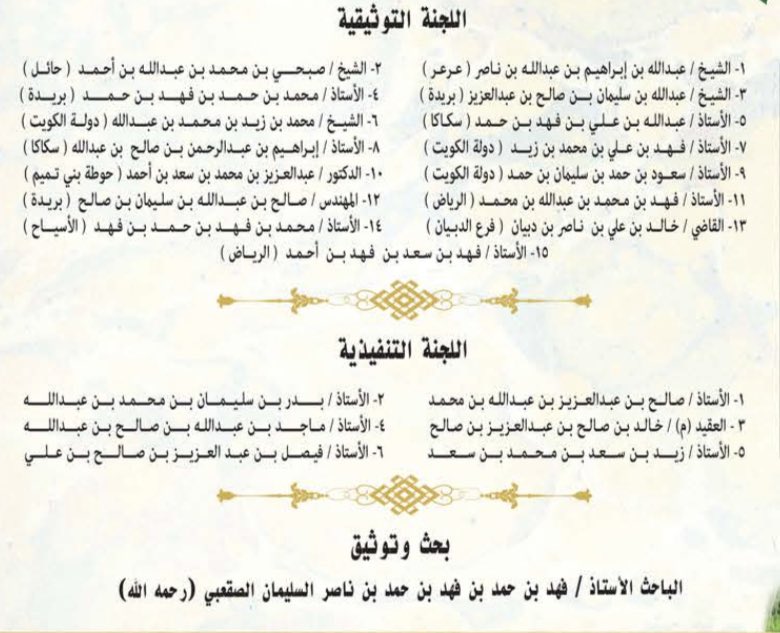 اللجنة التوثيقية
١- الشيخ / عبدالله بن إبراهيم بن عبدالله بن ناصر ( عرعر ) ٢- الشيخ / صبحي بن محمد بن عبدالله بن أحمد ( حائل )
٣- الشيخ / عبدالله بن سليمان بن صالح بن عبدالعزيز ( بريدة ) ٤- الأستاذ / محمد بن حمد بن فهد بن حمد ( بريدة )
٥- الأستاذ / عبدالله بن علي بن فهد بن حمد ( سكاكا ) ٦- الشيخ / محمد بن زيد بن محمد بن عبدالله ( دولة الكويت )
٧- الأستاذ / فهد بن علي بن محمد بن زيد ( دولة الكويت ) ٨- الأستاذ / إبراهيم بن عبدالرحمن بن صالح بن عبدالله ( سكاكا )
٩- الأستاذ / سعود بن حمد بن سليمان بن حمد ( دولة الكويت ) ١٠- الدكتور / عبدالعزيز بن محمد بن سعد بن أحمد ( حوطة بني تميم )
١١- الأستاذ / فهد بن محمد بن عبدالله بن محمد ( الرياض ) ١٢- المهندس / صالح بن عبدالله بن سليمان بن صالح ( بريدة )
١٣- القاضي / خالد بن علي بن ناصر بن دبيان ( فرع الدبيان ) ١٤- الأستاذ / محمد بن فهد بن حمد بن فهد ( الأسياح )
١٥- الأستاذ / فهد بن سعد بن فهد بن أحمد ( الرياض )
اللجنة التنفيذية
١- الأستاذ / صالح بن عبدالعزيز بن عبدالله بن محمد ٢- الأستاذ / بدر بن سليمان بن محمد بن عبدالله
٣- العقيد (م) / خالد بن صالح بن عبدالعزيز بن صالح ٤- الأستاذ / ماجد بن عبدالله بن صالح بن عبدالله
٥- الأستاذ / زيد بن سعد بن محمد بن سعد ٦- الأستاذ / فيصل بن عبد العزيز بن صالح بن علي
بحث وتوثيق
الباحث الأستاذ / فهد بن حمد بن فهد بن حمد بن ناصر السليمان الصقعبي (رحمه الله)